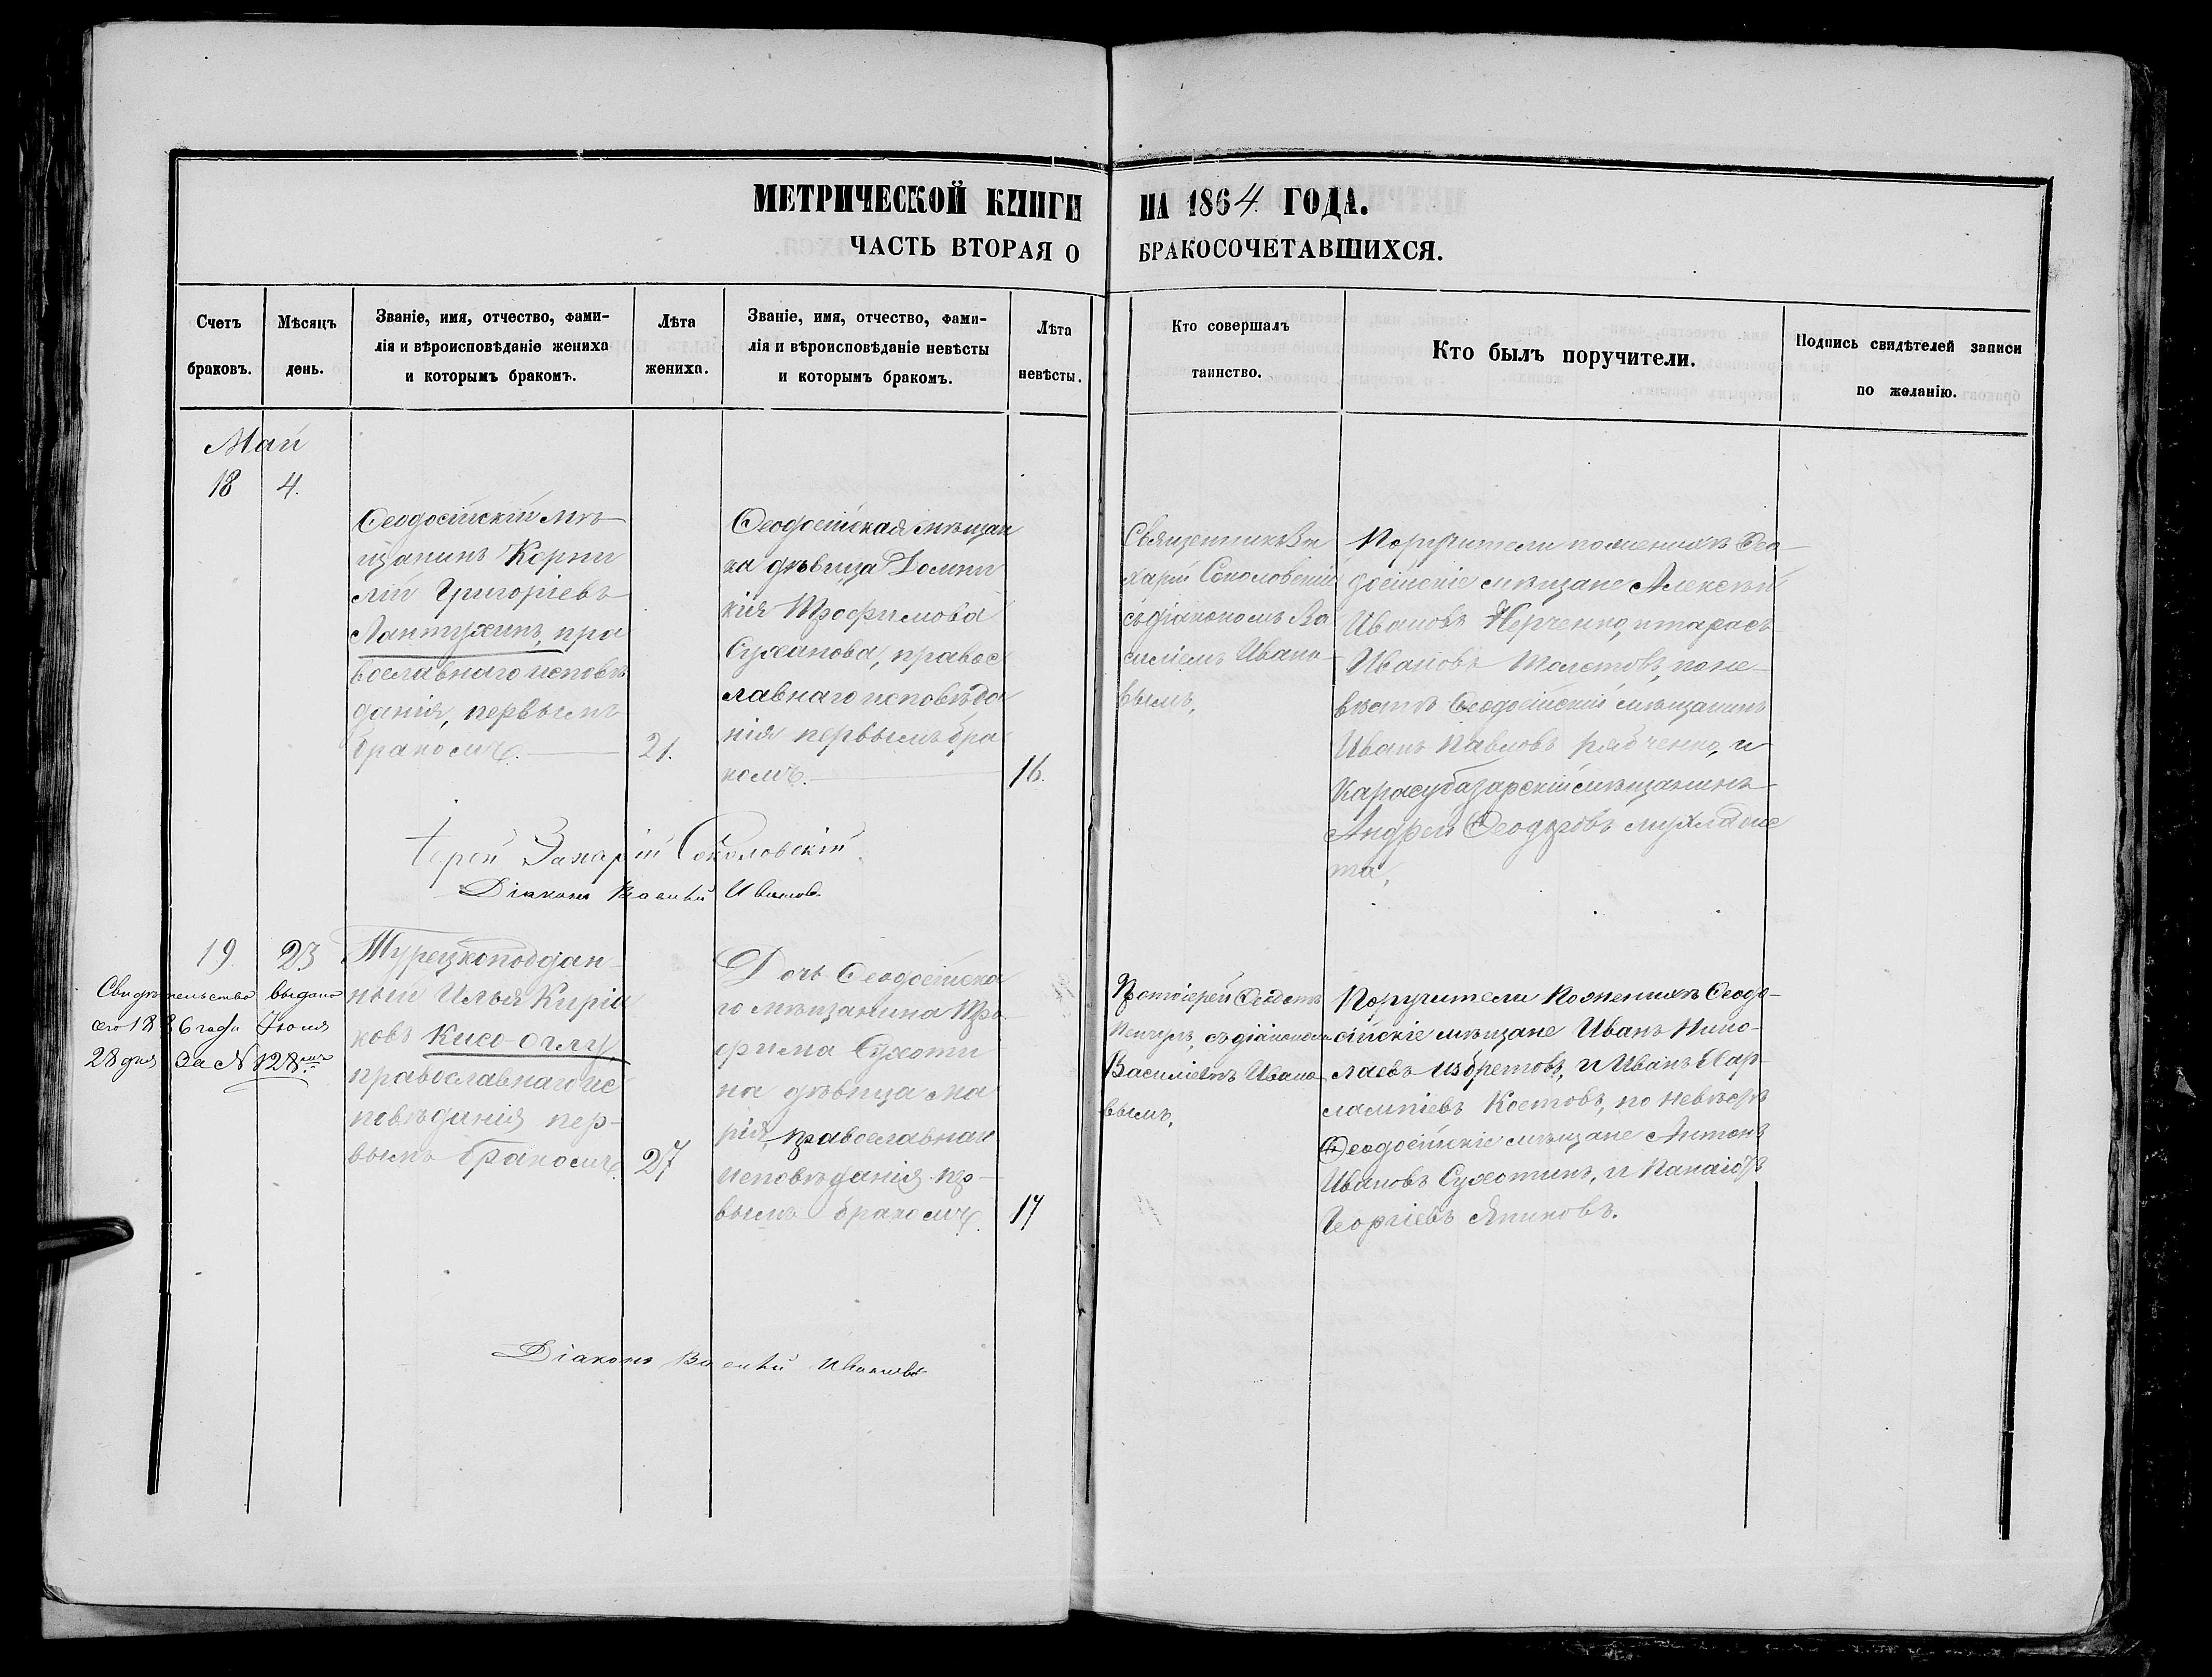 МЕТРИЧЕСКОЙ КНИГИ НА 1864 ГОДА.
ЧАСТЬ ВТОРАЯ О БРАКОСОЧЕТАВШИХСЯ.
Счетъ
браковъ.
Мѣсяцъ
день.
Званіе, имя, отчество, фами-
лія и вѣроисповѣданіе жениха
и которымъ бракомъ.
Лѣта
жениха.
Званіе, имя, отчество, фами-
лія и вѣроисповѣданіе невѣсты
и которымъ бракомъ.
Лѣта
невѣсты.
Кто совершалъ
таинство.
Кто былъ поручители.
Подпись свидѣтелей записи
по желанію.
Май
18
4.
Ѳеодосійскій мѣ-
щанинъ Корни
лій Григоріевъ
Лантухинъ, пра
вославнаго исповѣ
данія, первымъ
бракомъ.
21.
Ѳеодосійская мѣщан
ка дѣвица Домни
кія Трофимова
Суханова, правос
лавнаго исповѣда
нія первымъ бра
комъ.
16.
Священникъ За
харій Соколовскій
съ діакономъ Ва
силіемъ Ивано-
вымъ,
Поручители по женихѣ Ѳео-
досійскіе мѣщане Алексѣй
Ивановъ и Тарасъ
Ивановъ по не-
вѣстѣ Ѳеодосійскій мѣщанинъ
Иванъ Павловъ Рябченко, и
Карасубазарскій мѣщанинъ
Андрей Ѳеодоровъ
та,
Іерей Захарій Соколовскій
Діаконъ Василій Ивановъ.
19.
23
Свидѣтельство выдано
сего 1886 года Іюня
28 дня За № 128мъ
Турецкоподдан-
ный Илья Киріа
ковъ Кисо-оглу,
православнаго ис
повѣданія пер-
вымъ бракомъ.
27
Дочь Ѳеодосійска
го мѣщанина Тро-
фима Сухоти
на дѣвица Ма
рія, православнаго
исповѣданія пер-
вымъ бракомъ.
17
Протоіерей
съ діакономъ
Василіемъ Ивано-
вымъ,
Поручители по женихѣ Ѳеодо-
сійскіе мѣщане Иванъ Нико-
лаевъ Избретовъ, и Иванъ Хар-
лампіевъ Костовъ, по невѣстѣ
Ѳеодосійскіе мѣщане Антонъ
Ивановъ Сухотинъ, и Панаіотъ
Георгіевъ Япиковъ.
Діаконъ Василій Ивановъ